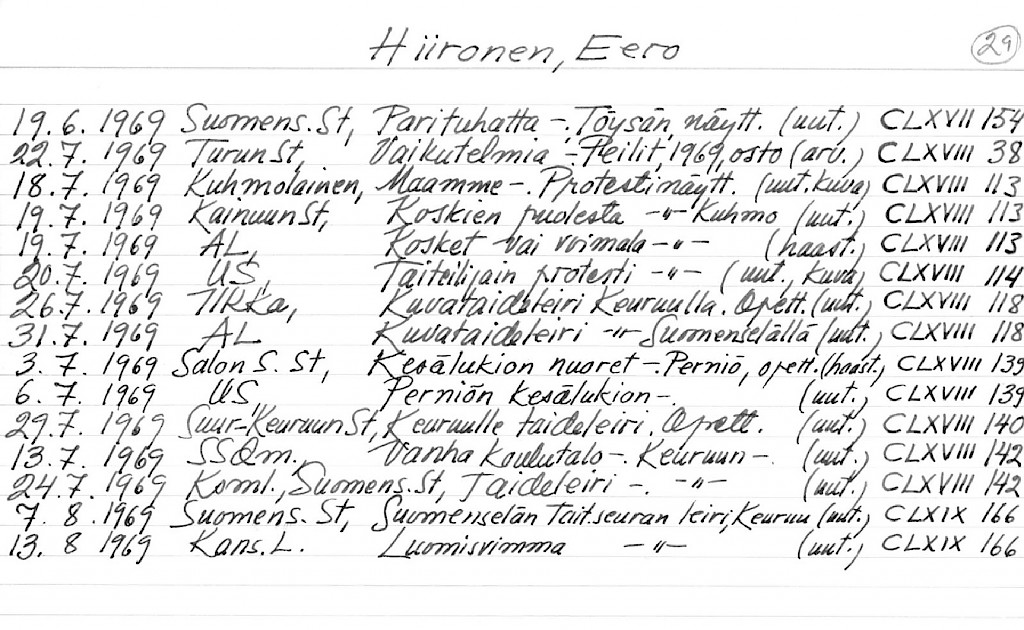 Hiironen, Eero
29
19.6. 1969 Suomens. St, Parituhatta -. Töysän näytt. (uut.) CLXVII 154
22.7. 1969 Turun St, Vaikutelmia -. Peilit, 1969, osto (arv.) CLXVIII 38
18.7. 1969 Kuhmolainen, Maamme -. Protestinäytt. (uut. kuva) CLXVIII 113
19.7. 1969 Kainuun St, Koskien puolesta -"- Kuhmo (uut.) CLXVIII 113
19.7. 1969 AL, Kosket vai voimala -"- (haast.) CLXVIII 113
20.7. 1969 US, Taiteilijain protesti -"- (uut., kuva) CLXVIII 114
26.7. 1969 Kuvataideleiri Keuruulla. Opett. (uut.) CLXVIII 118
31.7. 1969 AL Kuvataideleiri -"- Suomenselällä (uut.) CLXVIII 118
3. 7. 1969 Salon S. St, Kesälukion nuoret -. Perniö, opett. (haast.) CLXVIII 139
6. 7. 1969 US, Perniön kesälukion -. (uut.) CLXVIII 139
29.7. 1969 Suur-Keuruun St, Keuruulle taideleiri. Opett. (uut.) CLXVIII 140
13.7. 1969 SSdm. Vanha koulutalo -. Keuruun -. (uut.) CLXVIII 142
24.7. 1969 Koml., Suomens. St, Taideleiri -. -"- (uut.) CLXVIII 142
7. 8. 1969 Suomens. St, Suomenselän Tait.seuran leiri, Keuruu (uut.) CLXIX 166
13. 8 1969 Kans. L. Luomisvimma -"- (uut.) CLXIX 166